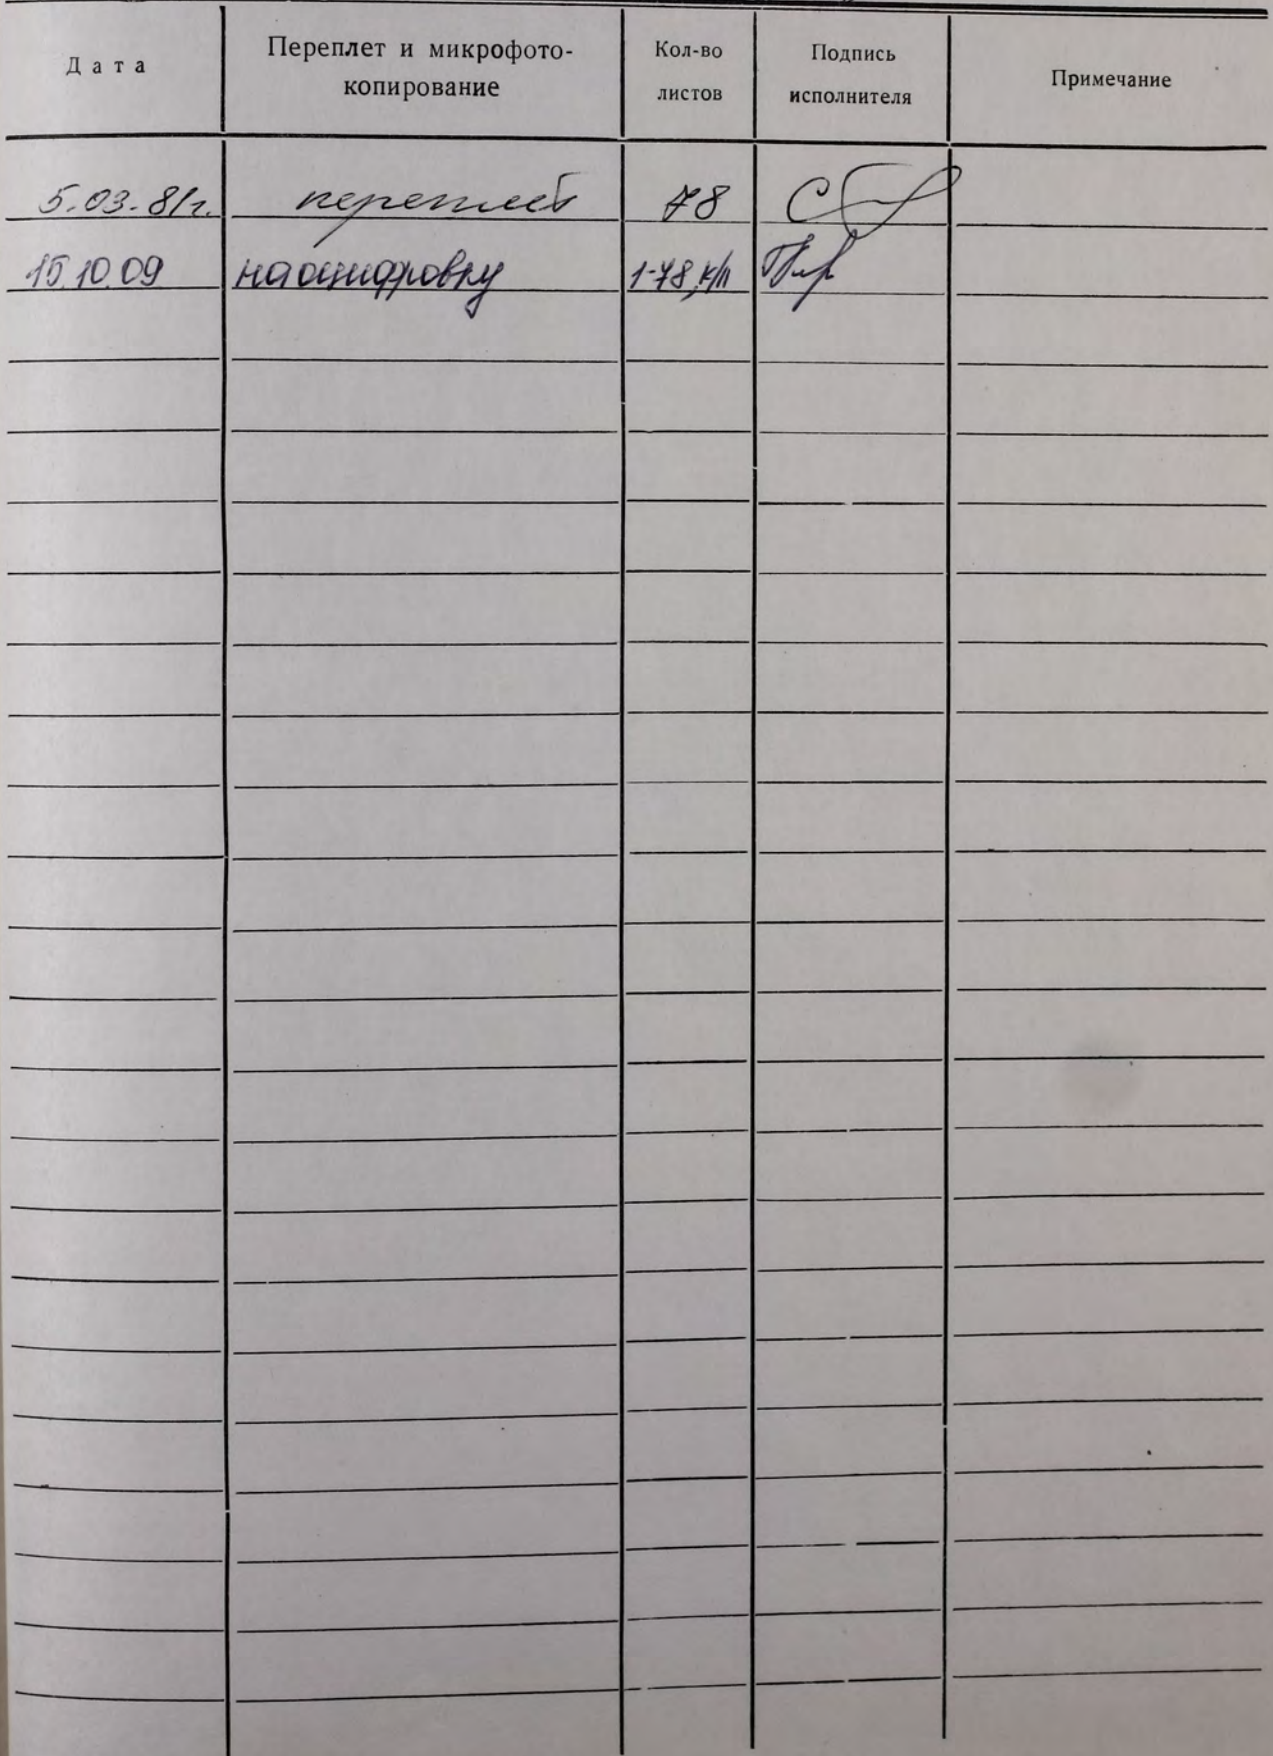 Дата
Переплет и микрофото-
копирование
Кол-во
листов
Подпись
исполнителя
Примечание
5.03.81г. переплет 78
15.10.09 на оцифровку 1-78,